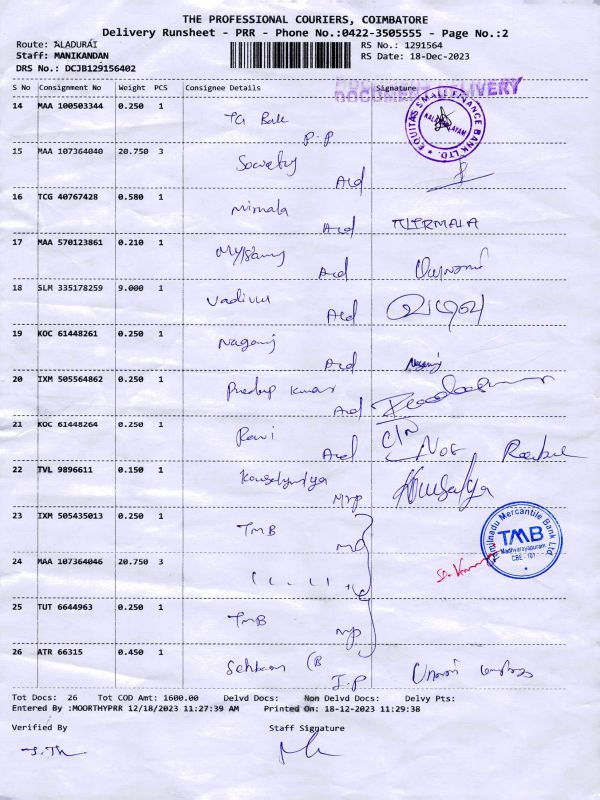 THE PROFESSIONAL COURIERS, COIMBATORE
Delivery Runsheet - PRR - Phone No.:0422-3505555 - Page No.:2
Route: ALADURAI
RS No.: 1291564
Staff: MANIKANDAN
RS Date: 18-Dec-2023
DRS No.: DCJB129156402
DOCUMENT DELIVERY
S No Consignment No Weight PCS Consignee Details Signature
14 MAA 100503344 0.250 1
P.P
EQUITAS SMALL FINANCE BANK LTD.
15 MAA 107364040 20.750 3
Ald
16 TCG 40767428 0.580 1 Nirmala Ald NIRMALA
17 MAA 570123861 0.210 1 Ald
18 SLM 335178259 9.000 1 Vadivu Ald
19 KOC 61448261 0.250 1 Nagaraj Ald Nagaraj
20 IXM 505564862 0.250 1 Pradeep Kumar Ald
21 KOC 61448264 0.250 1 Ravi Ald
22 TVL 9896611 0.150 1 Kousalya
23 IXM 505435013 0.250 1 TMB
Tamilnadu Mercantile Bank Ltd
TMB
Madhvarayapuram
CBE - 101
24 MAA 107364046 20.750 3
25 TUT 6644963 0.250 1 TMB
26 ATR 66315 0.450 1
I.P
Tot Docs: 26 Tot COD Amt: 1600.00 Delvd Docs: Non Delvd Docs: Delvy Pts:
Entered By :MOORTHYPRR 12/18/2023 11:27:39 AM Printed On: 18-12-2023 11:29:38
Verified By Staff Signature